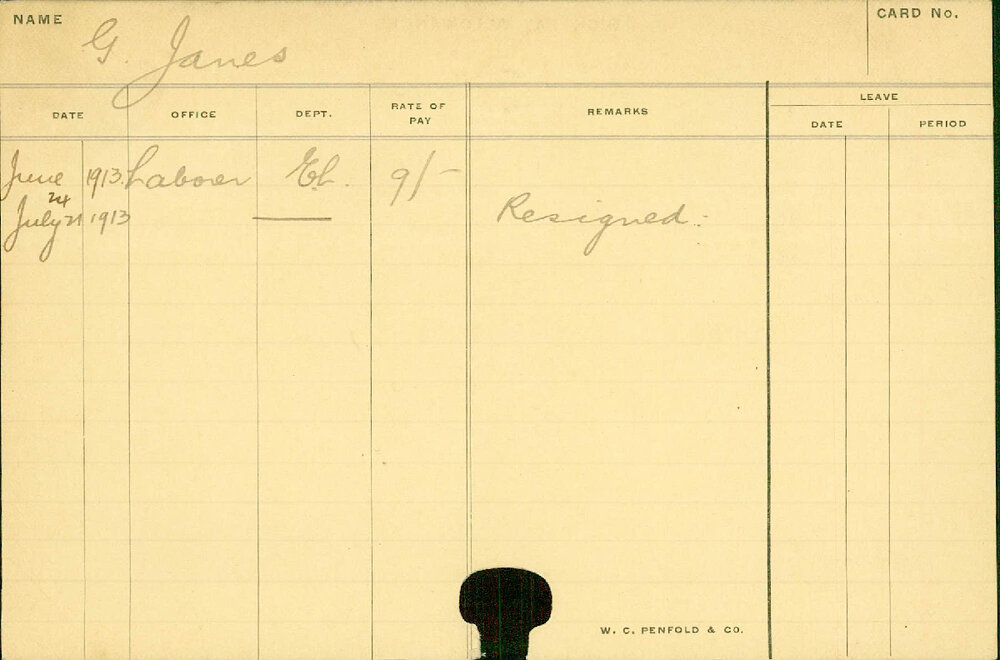 NAME
G. Janes
CARD No.
DATE OFFICE DEPT. RATE OF PAY REMARKS LEAVE
DATE PERIOD
June 1913. Laborer E.L. 9/-
24
July 21 1913 — Resigned.
W. C. PENFOLD & CO.